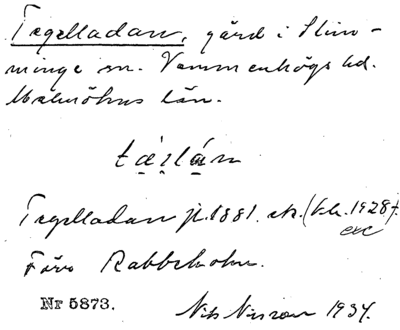 Tegelladan, gård i Slim-
minge sn. Vemmenhögs hd.
Malmöhus län.
Tegelladan jr. 1881. ek. (tr. 1928).
Förr Rabbeholm.
Nr 5873.
Nils Nilsson 1934.